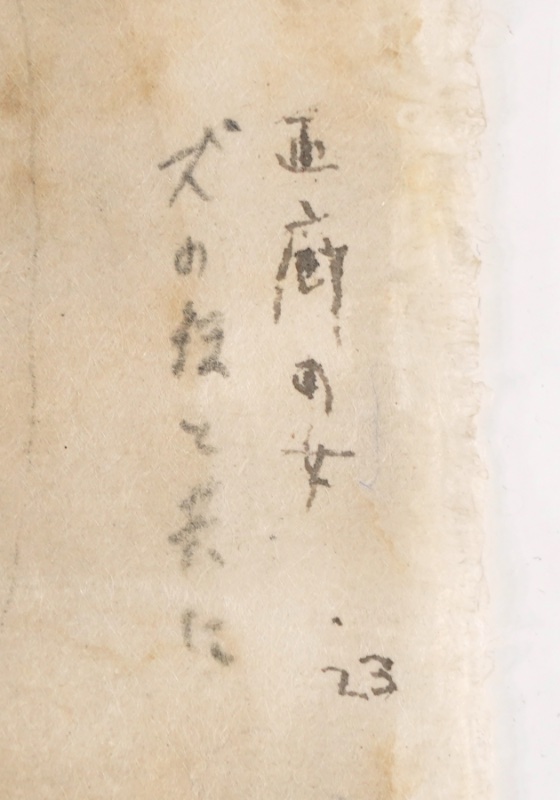 画廊の女
犬の役と共に
23